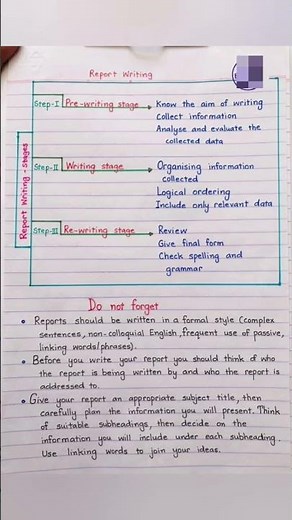 Report Writing
Step-I Pre-writing stage Know the aim of writing
Collect information
Analyse and evaluate the
collected data
Report Writing - Stages
Step-II Writing stage Organising information
collected
Logical ordering
Include only relevant data
Step-III Re-writing stage Review
Give final form
Check spelling and
grammar
Do not forget
Reports should be written in a formal style (complex
sentences, non-colloquial English, frequent use of passive,
linking words/phrases).
Before you write your report you should think of who
the report is being written by and who the report is
addressed to.
Give your report an appropriate subject title, then
carefully plan the information you will present. Think
of suitable subheadings, then decide on the
information you will include under each subheading.
Use linking words to join your ideas.